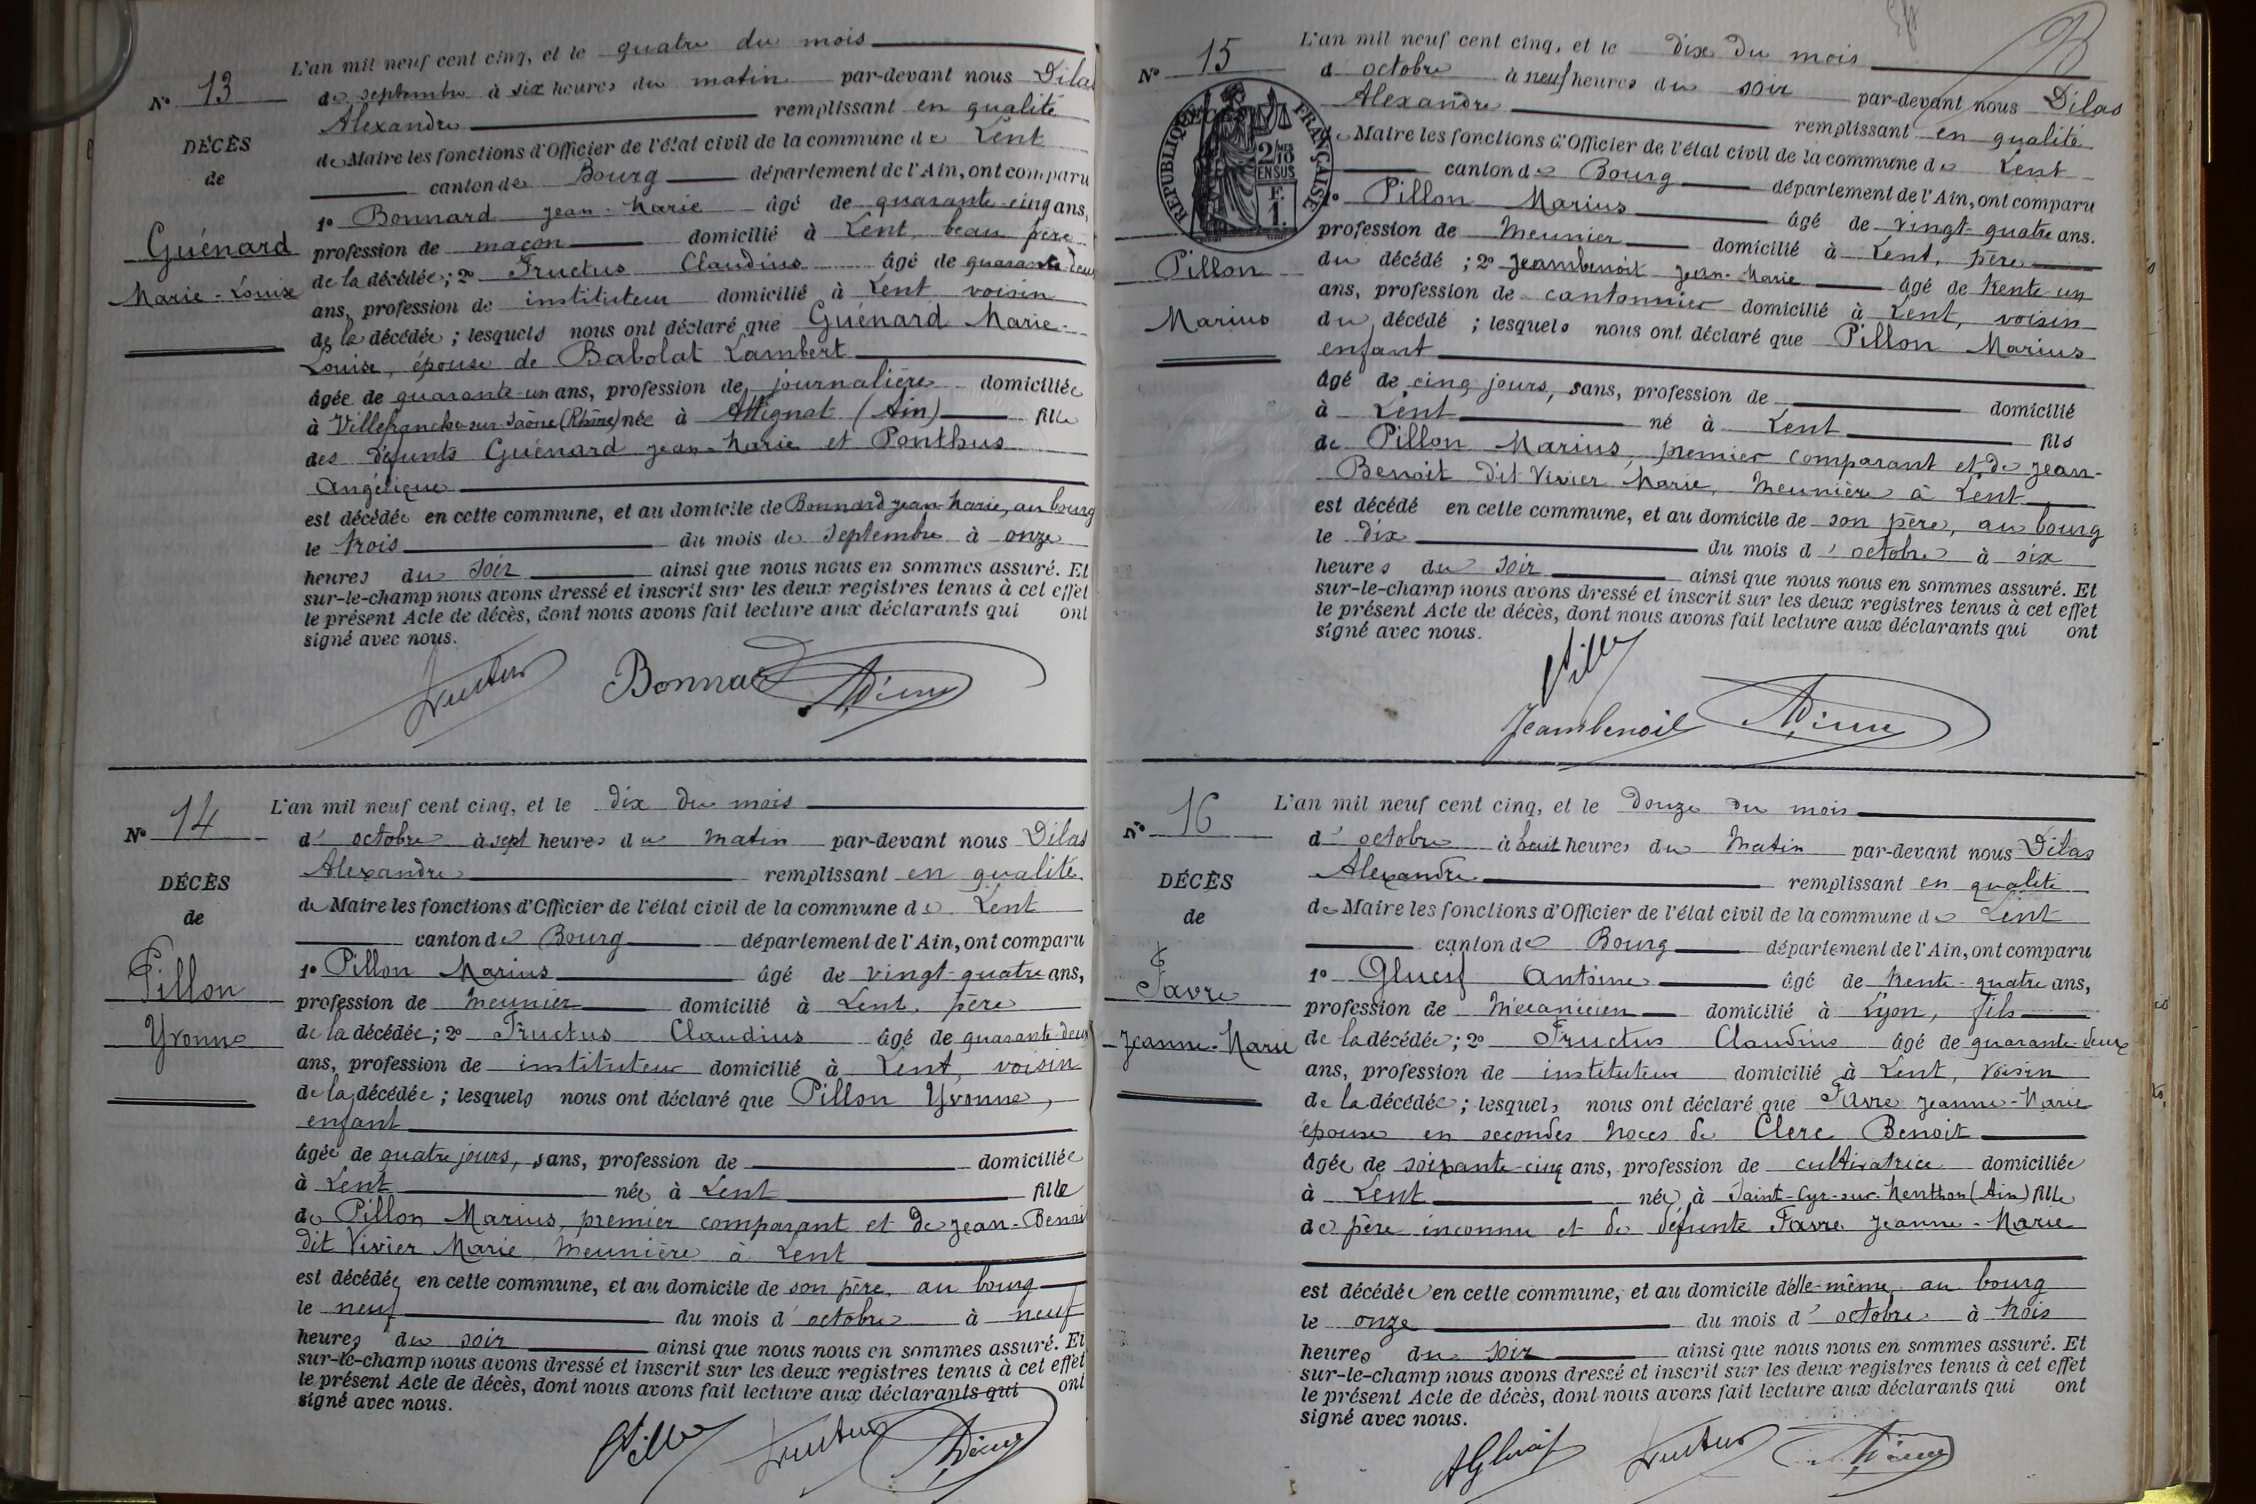 L'an mil neuf cent cinq, et le quatre du mois
N° 13
de septembre à six heures du matin par-devant nous Dilas
Alexandre remplissant en qualité
DÉCÈS
de Maire les fonctions d'Officier de l'état civil de la commune de Lent
de
canton de Bourg département de l'Ain, ont comparu
1° Bonnard Jean-Marie âgé de quarante-cinq ans,
Guénard
profession de maçon domicilié à Lent, beau père
Marie-Louise
de la décédée; 2° Fructus Claudius âgé de quarante-deux
ans, profession de instituteur domicilié à Lent voisin
de la décédée; lesquels nous ont déclaré que Guénard Marie-
Louise, épouse de Babolat Lambert
âgée de quarante-un ans, profession de journalière domiciliée
à Villefranche-sur-Saône (Rhône) née à Attignat (Ain) fille
des défunts Guénard Jean-Marie et Ponthus
Angélique
est décédée en cette commune, et au domicile de Bonnard Jean-Marie, au bourg
le trois du mois de Septembre à onze
heures du soir ainsi que nous nous en sommes assuré. Et
sur-le-champ nous avons dressé et inscrit sur les deux registres tenus à cet effet
le présent Acte de décès, dont nous avons fait lecture aux déclarants qui ont
signé avec nous.
Fructus Bonnard
L'an mil neuf cent cinq, et le dix du mois
N° 14
d'octobre à sept heures du matin par-devant nous Dilas
Alexandre remplissant en qualité
DÉCÈS
de Maire les fonctions d'Officier de l'état civil de la commune de Lent
de
canton de Bourg département de l'Ain, ont comparu
Pillon
1° Pillon Marius âgé de vingt-quatre ans,
profession de meunier domicilié à Lent, père
Yvonne
de la décédée; 2° Fructus Claudius âgé de quarante-deux
ans, profession de instituteur domicilié à Lent, voisin
de la décédée; lesquels nous ont déclaré que Pillon Yvonne,
enfant
âgée de quatre jours, sans, profession de domiciliée
à Lent née à Lent fille
de Pillon Marius, premier comparant et de Jean-Benoit
dit Vivier Marie, meunière à Lent
est décédée en cette commune, et au domicile de son père, au bourg
le neuf du mois d'octobre à neuf
heures du soir ainsi que nous nous en sommes assuré. Et
sur-le-champ nous avons dressé et inscrit sur les deux registres tenus à cet effet
le présent Acte de décès, dont nous avons fait lecture aux déclarants qui ont
signé avec nous.
Pillon Fructus
L'an mil neuf cent cinq, et le dix du mois
N° 15
d'octobre à neuf heures du soir par-devant nous Dilas
Alexandre remplissant en qualité
RÉPUBLIQUE FRANÇAISE
2/10 EN SUS
F. 1.
de Maire les fonctions d'Officier de l'état civil de la commune de Lent
canton de Bourg département de l'Ain, ont comparu
1° Pillon Marius âgé de vingt-quatre ans.
profession de Meunier domicilié à Lent, père
Pillon
du décédé; 2° Jeambenoit Jean-Marie âgé de trente-un
ans, profession de cantonnier domicilié à Lent, voisin
Marius
du décédé; lesquels nous ont déclaré que Pillon Marius
enfant
âgé de cinq jours, sans, profession de domicilié
à Lent né à Lent fils
de Pillon Marius, premier comparant et de Jean-
Benoit dit Vivier Marie, Meunière à Lent
est décédé en cette commune, et au domicile de son père, au bourg
le dix du mois d'octobre à six
heures du soir ainsi que nous nous en sommes assuré. Et
sur-le-champ nous avons dressé et inscrit sur les deux registres tenus à cet effet
le présent Acte de décès, dont nous avons fait lecture aux déclarants qui ont
signé avec nous.
Pillon
Jeambenoit
L'an mil neuf cent cinq, et le douze du mois
N° 16
d'octobre à huit heures du Matin par-devant nous Dilas
Alexandre remplissant en qualité
DÉCÈS
de Maire les fonctions d'Officier de l'état civil de la commune de Lent
de
canton de Bourg département de l'Ain, ont comparu
Favre
1° Antoine âgé de trente-quatre ans,
profession de Mécanicien domicilié à Lyon, fils
Jeanne-Marie
de la décédée; 2° Fructus Claudius âgé de quarante-deux
ans, profession de instituteur domicilié à Lent, voisin
de la décédée; lesquels nous ont déclaré que Favre Jeanne-Marie
épouse en secondes noces de Clerc Benoit
âgée de soixante-cinq ans, profession de cultivatrice domiciliée
à Lent née à Saint-Cyr-sur-Menthon (Ain) fille
de père inconnu et de défunte Favre Jeanne-Marie
est décédée en cette commune, et au domicile d'elle-même, au bourg
le onze du mois d'octobre à trois
heures du soir ainsi que nous nous en sommes assuré. Et
sur-le-champ nous avons dressé et inscrit sur les deux registres tenus à cet effet
le présent Acte de décès, dont nous avons fait lecture aux déclarants qui ont
signé avec nous.
Fructus